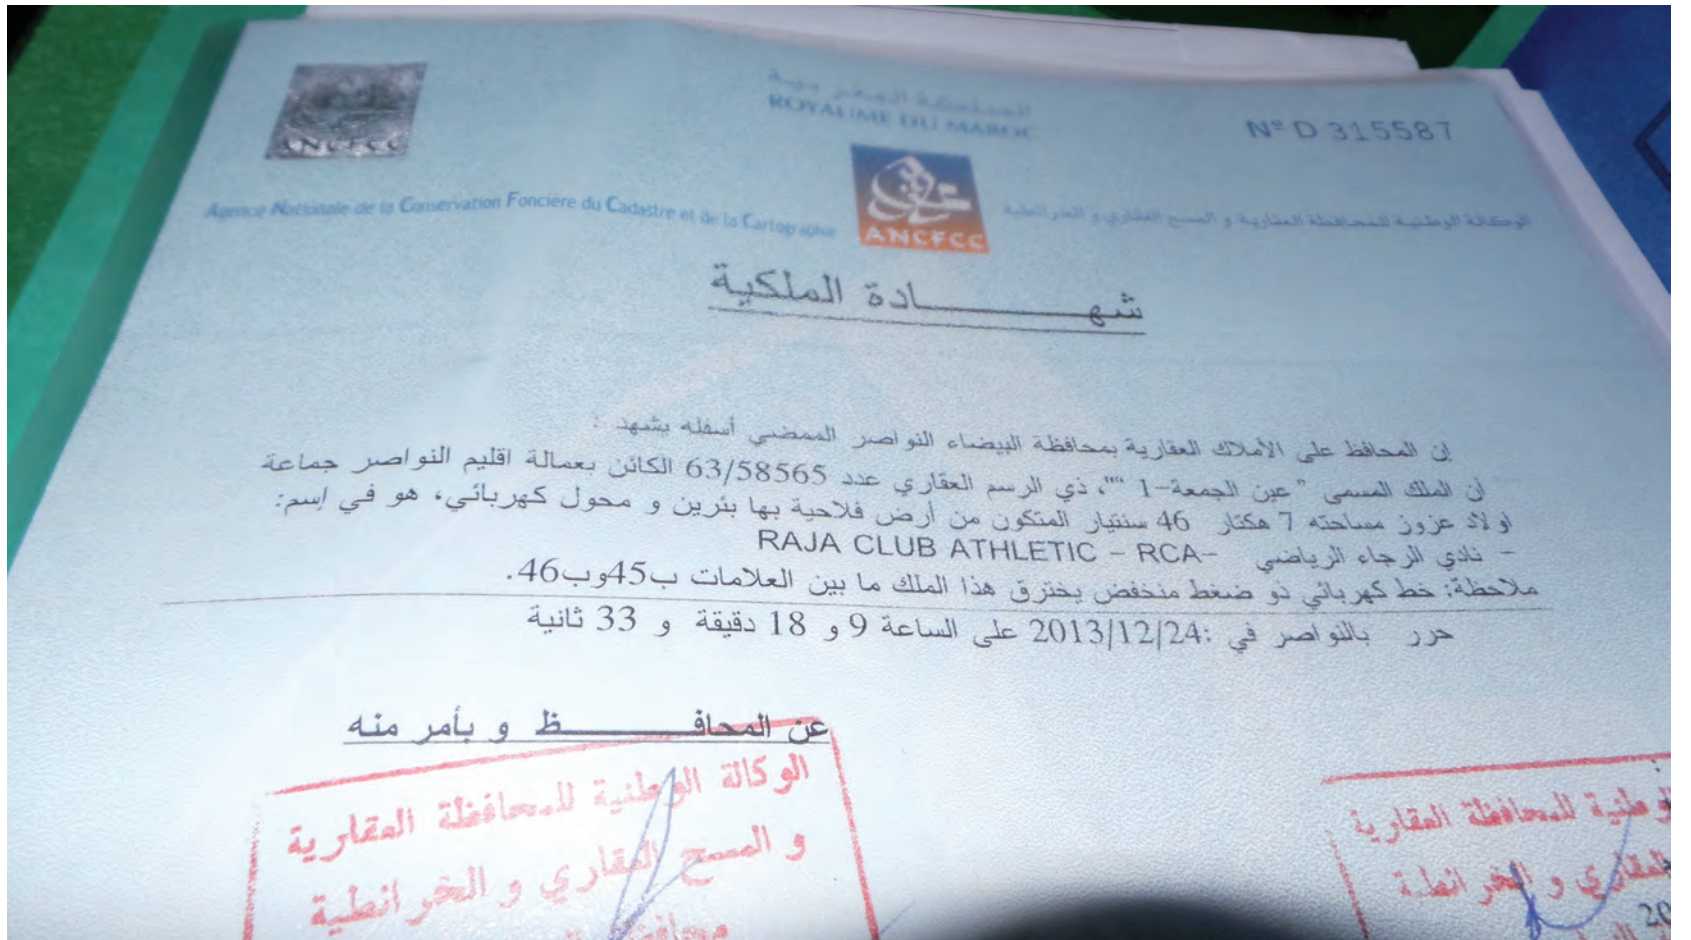 ANCFCC
المملكة المغربية
ROYAUME DU MAROC
N° D 315587
Agence Nationale de la Conservation Foncière du Cadastre et de la Cartographie
ANCFCC
الوكالة الوطنية للمحافظة العقارية و المسح العقاري و الخرائطية
شهـــــــــادة الملكية
إن المحافظ على الأملاك العقارية بمحافظة البيضاء النواصر الممضي أسفله يشهد :
أن الملك المسمى " عين الجمعة-1 ""، ذي الرسم العقاري عدد 63/58565 الكائن بعمالة اقليم النواصر جماعة
اولاد عزوز مساحته 7 هكتار 46 سنتيار المتكون من أرض فلاحية بها بئرين و محول كهربائي، هو في إسم:
- نادي الرجاء الرياضي -RAJA CLUB ATHLETIC – RCA
ملاحظة: خط كهربائي ذو ضغط منخفض يخترق هذا الملك ما بين العلامات ب45وب46.
حرر بالنواصر في :2013/12/24 على الساعة 9 و 18 دقيقة و 33 ثانية
عن المحافـــــــــظ و بأمر منه
الوكالة الوطنية للمحافظة العقارية
و المسح العقاري و الخرائطية
الوطنية للمحافظة العقارية
العقاري و الخرائطية